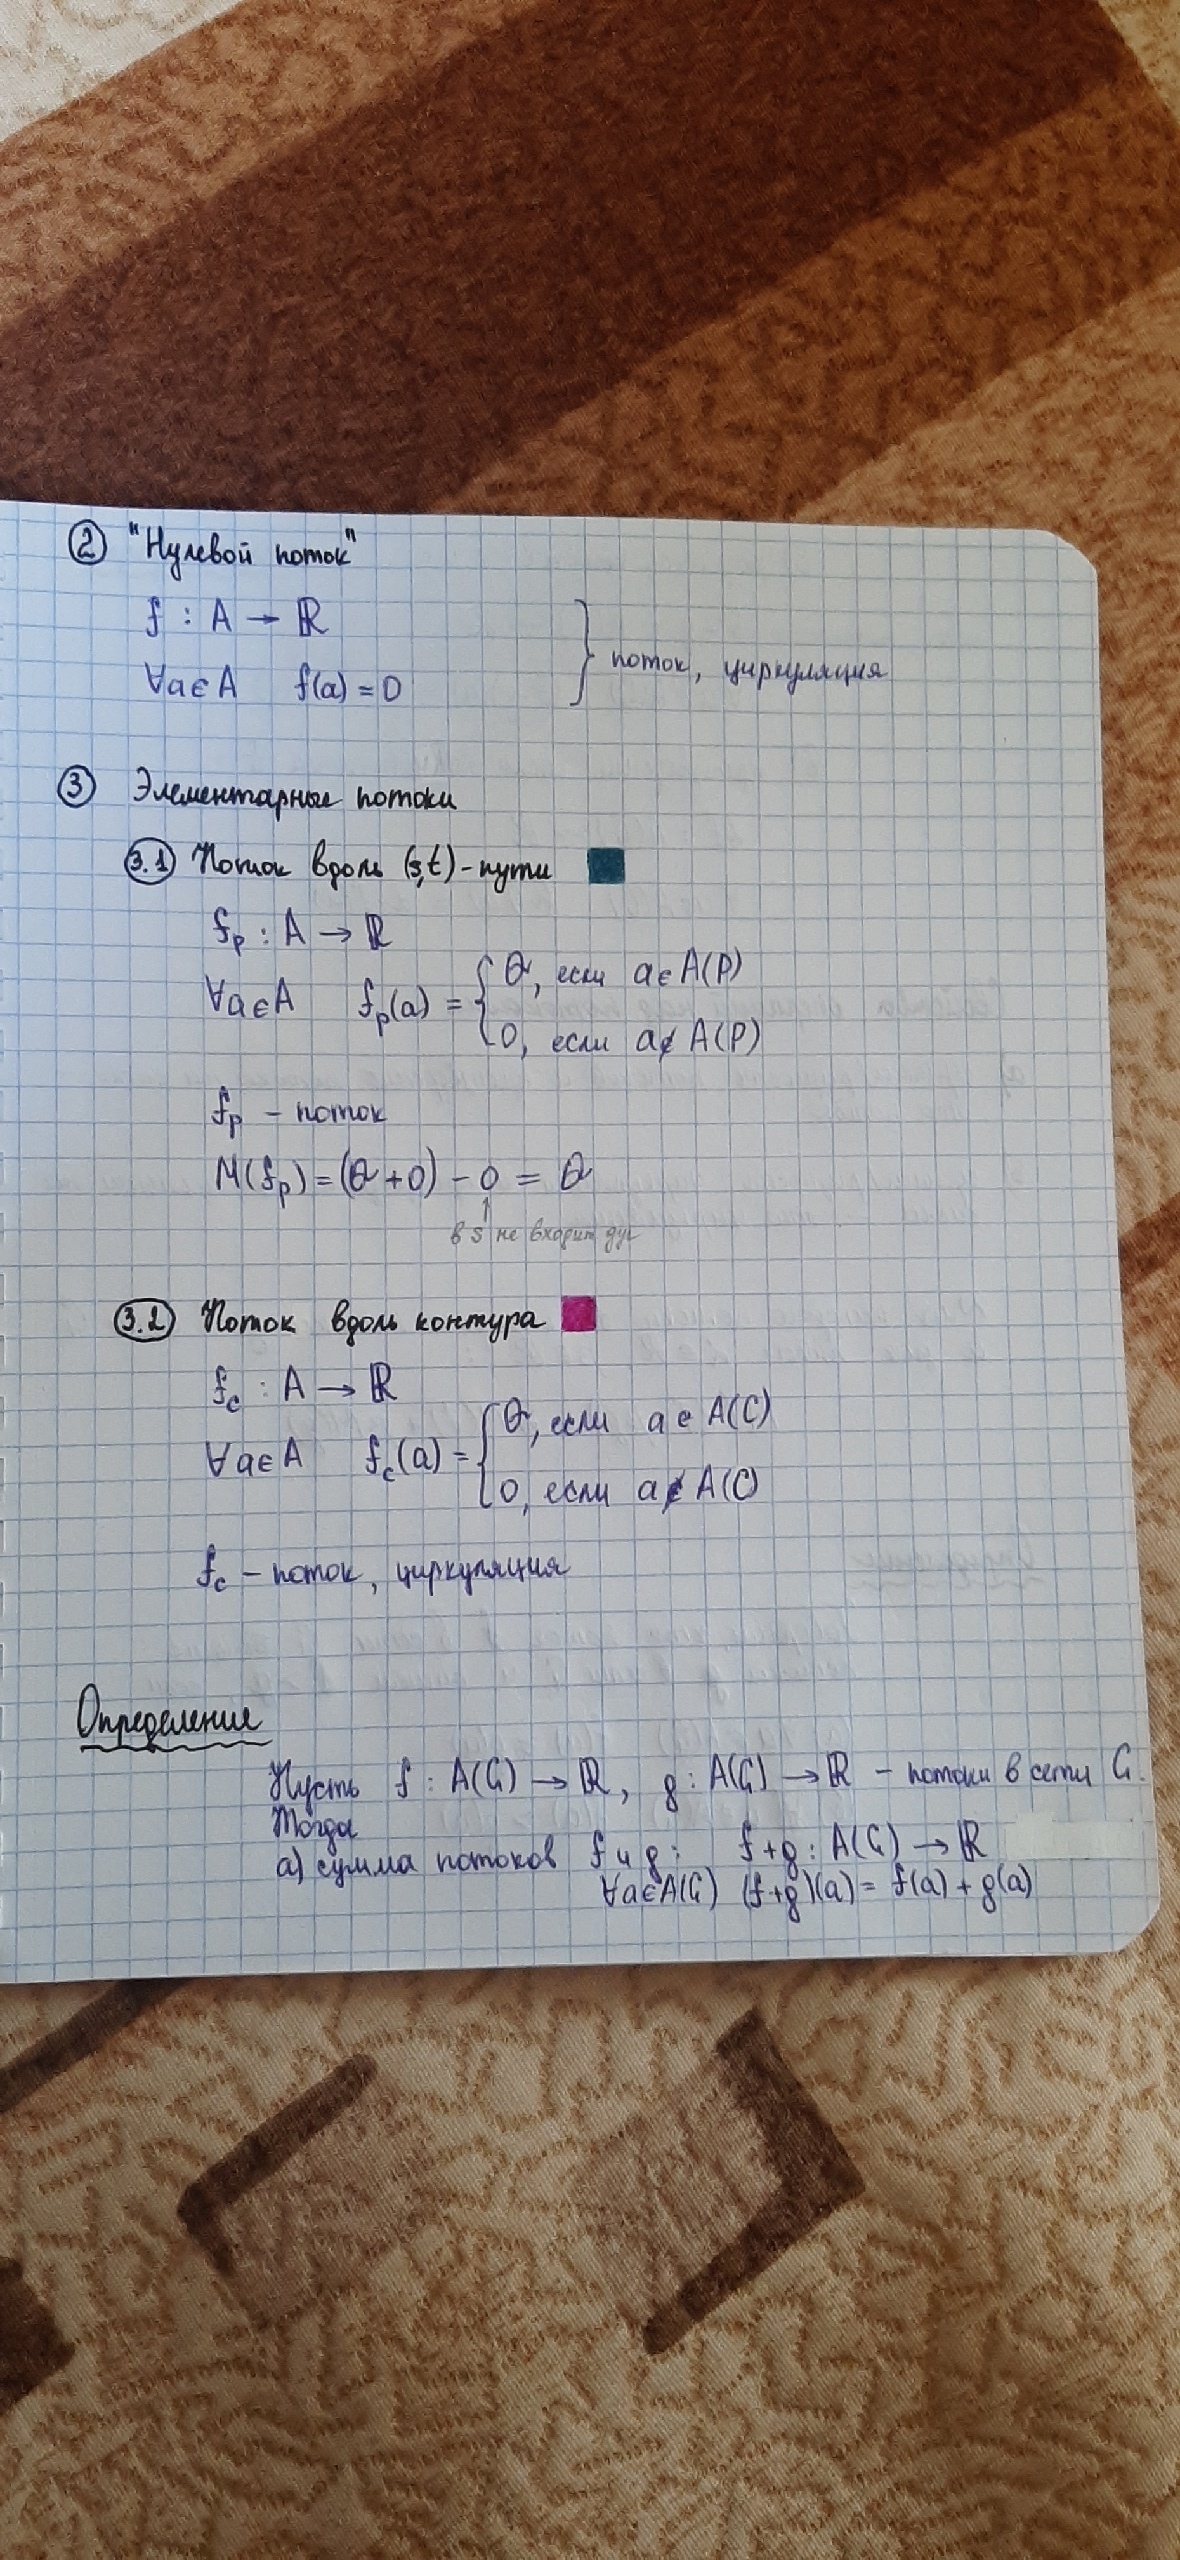 ② "Нулевой поток"
f : A → ℝ
∀a∈A f(a) = 0 } поток, циркуляция
③ Элементарные потоки
3.1 Поток вдоль (s,t)-пути
f_p : A → ℝ
∀a∈A f_p(a) = { θ, если a∈A(P)
0, если a∉A(P)
f_p – поток
M(f_p) = (θ + 0) – 0 = θ
↑
в s не входит дуг
3.2 Поток вдоль контура
f_c : A → ℝ
∀a∈A f_c(a) = { θ, если a∈A(C)
0, если a∉A(C)
f_c – поток, циркуляция
Определение
Пусть f : A(G) → ℝ, g : A(G) → ℝ – потоки в сети G.
Тогда
а) сумма потоков f и g: f+g : A(G) → ℝ
∀a∈A(G) (f+g)(a) = f(a) + g(a)